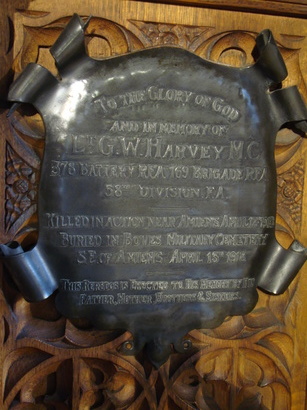 To the Glory of God
and in memory of
Lt G. W. Harvey M.C.
Battery R.F.A. Brigade R.F.A.
58th Division R.A.
Killed in action near Amiens April
Buried in Boves Military Cemetery
S.E. of Amiens April 1918
This Reredos is Erected to His Memory by His
Father, Mother, Brothers &